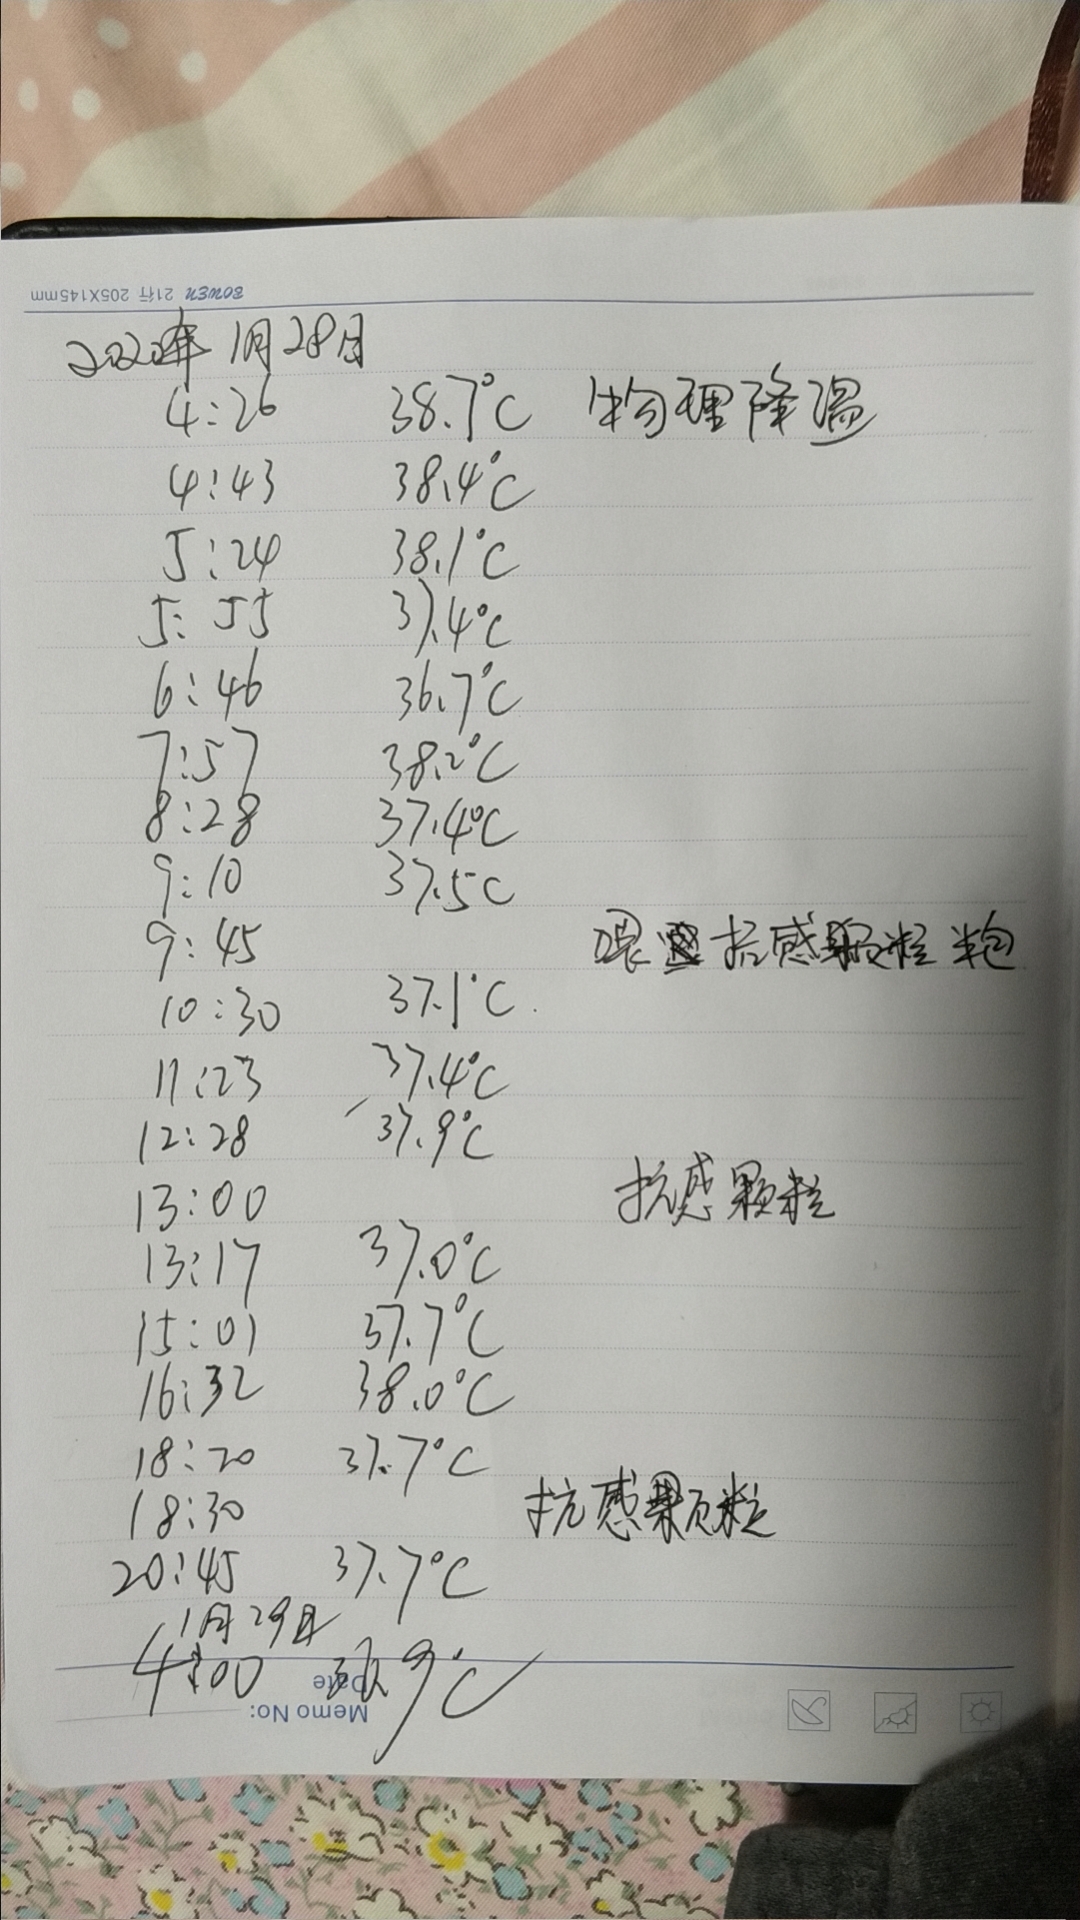 BOWEN 21行 205X145mm
2022年1月28日
4:26 38.7°C 物理降温
4:43 38.4°C
5:24 38.1°C
5:55 37.4°C
6:46 36.7°C
7:57 38.2°C
8:28 37.4°C
9:10 37.5C
9:45 喂 抗感颗粒
10:30 37.1°C.
11:23 37.4°C
12:28 37.9°C
13:00 抗感颗粒
13:17 37.0°C
15:01 37.7°C
16:32 38.0°C
18:20 37.7°C
18:30 抗感颗粒
20:45 37.7°C
1月29日
4:00
Date
Memo No: